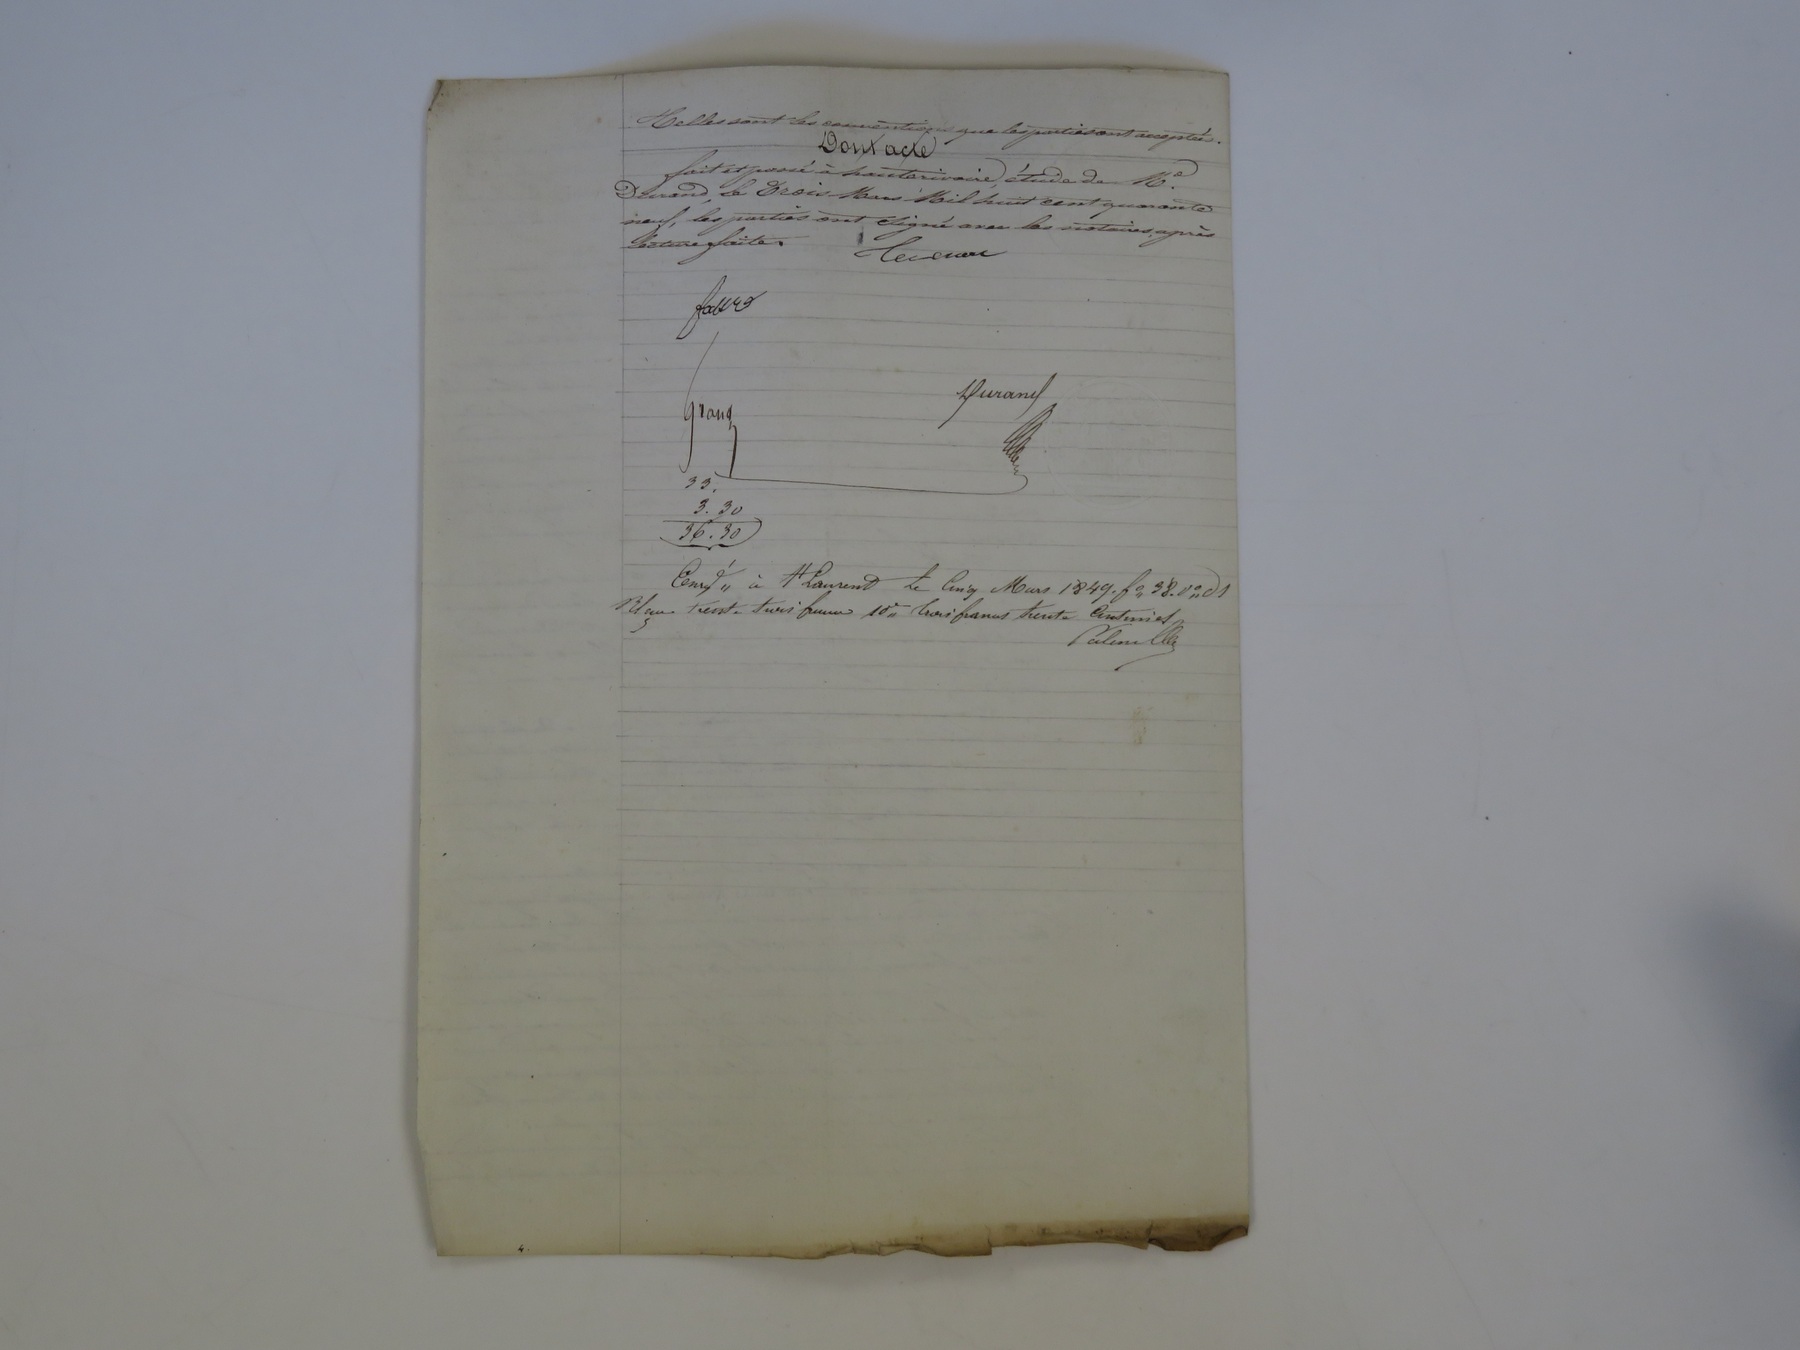 Telles sont les conventions que les parties ont acceptées.
Dont acte
fait et passé à hauterivoire, étude de Me
Durand, le Trois Mars Mil huit cent quarante
neuf, les parties ont signé avec les notaires, après
lecture faite.
fabre
Durand
grang
33.
3.30
36.30
Enregé à St Laurent le Cinq Mars 1849. fo 38.
Reçu trente trois francs 10e trois francs trente Centimes